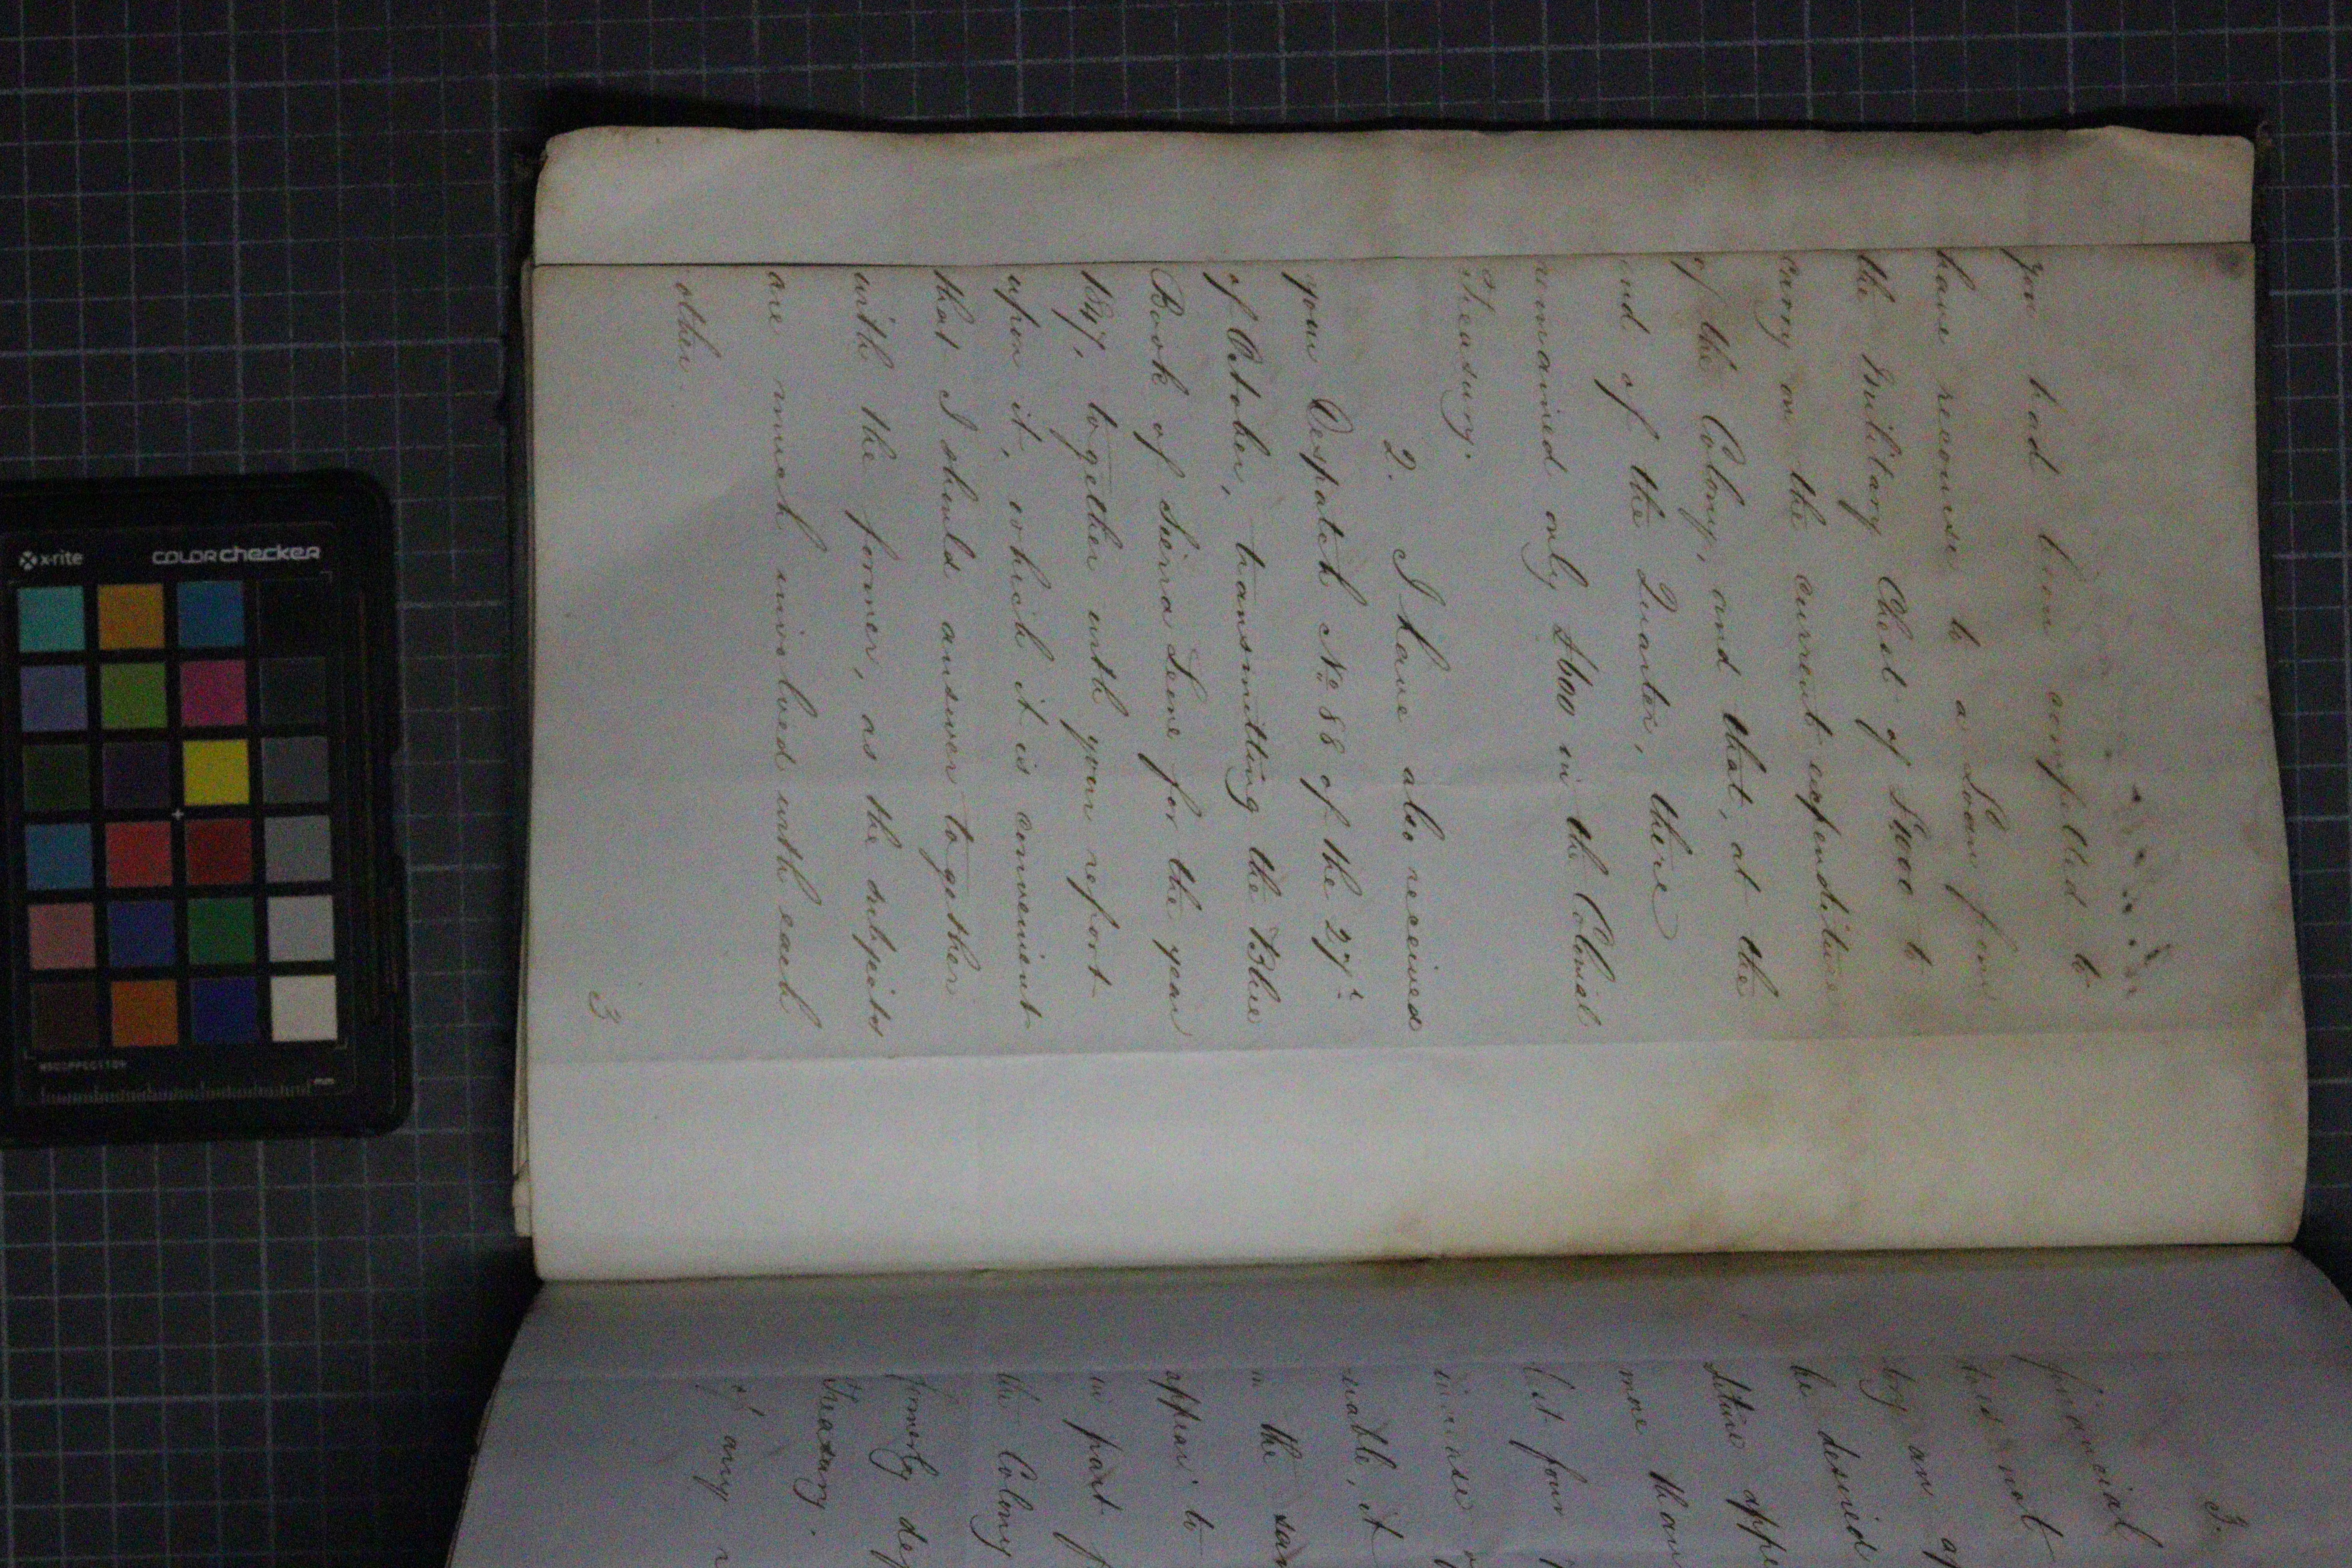 you had been compelled to
have recourse to a Loan from
the Military Chest of to
carry on the current expenditure
of the Colony, and that, at the
end of the Quarter, there
remained only £600 in the Colonial
Treasury.
2. I have also received
your Despatch No 88 of the 27th
of October, transmitting the Blue
Book of Sierra Leone for the year
1847, together with your report
upon it, which it is convenient
that I should answer together
with the former, as the subjects
are much involved with each
other.
3
3.
financial
does not
by an
be desired
appe
more than
last four
increase
it
in the sam
appear to
in part f
the Colony
formerly de
Treasury.
any
x-rite
COLORchecker
mm